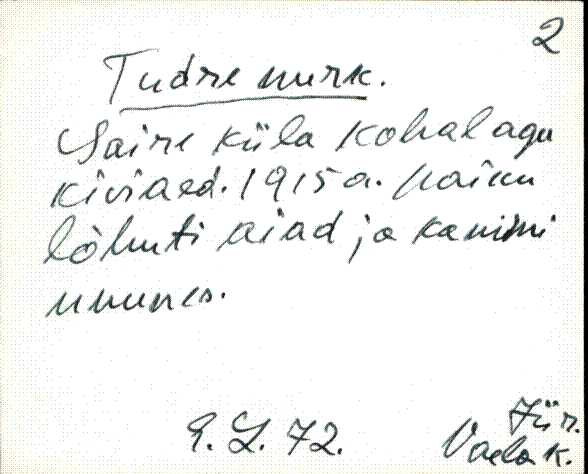 2
Tudre nurk.
Saire küla kohal agu
kiviaed. 1915 a. paiku
lõhuti aiad ja ka nimi
ununes.
E. L. 72.
Jür.
Vaela k.